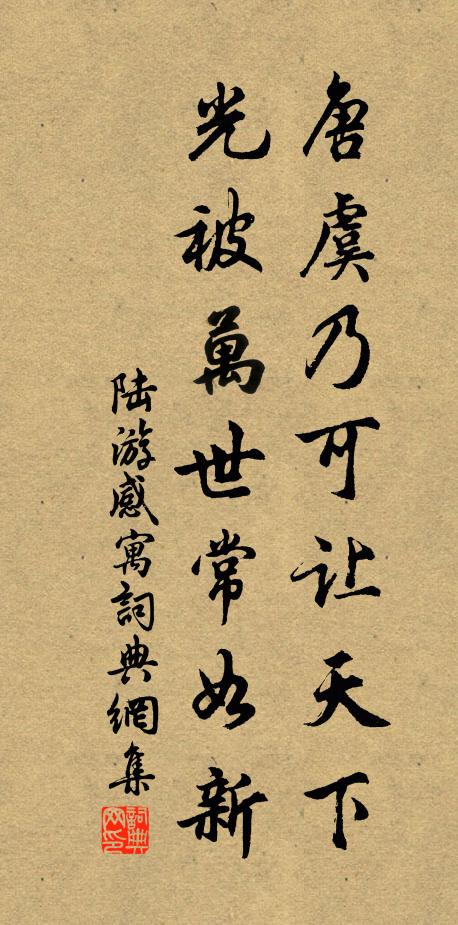 唐虞乃可让天下
光被萬世常如新
陆游感寓詞典網集
詞典网印